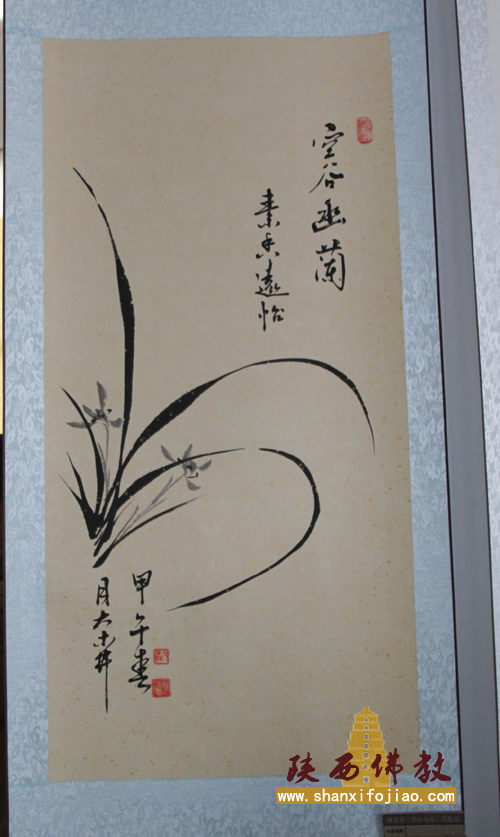 空谷幽蘭
素香遠怡
甲午春
月大
陕西佛教
www.shanxifojiao.com